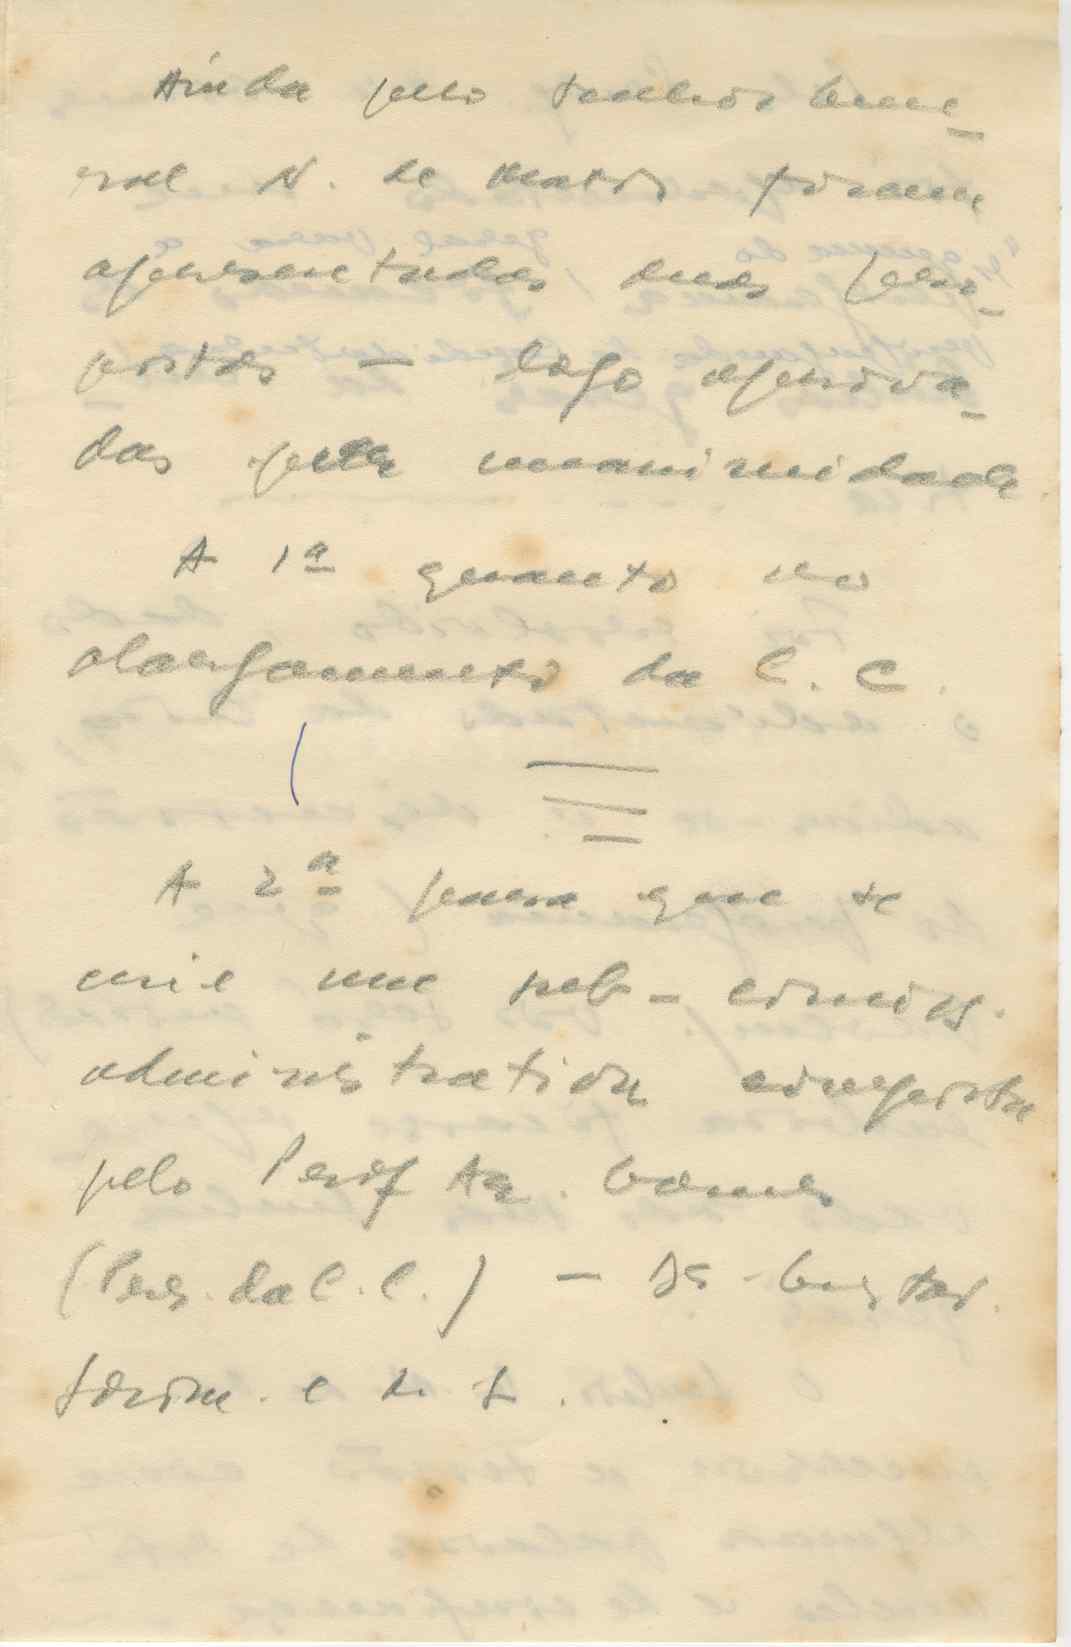 Ainda pelo senhor Gene-
ral N. de Matos foram
apresentadas duas pro-
postas — logo aprova-
das pela unanimidade.
A 1ª quanto ao
alargamento da C. C.
A 2ª para que se
crie uma sub-comiss.
administrativa composta
pelo Prof Az. Gomes
(Pres. da C. C.) — Dr.
e